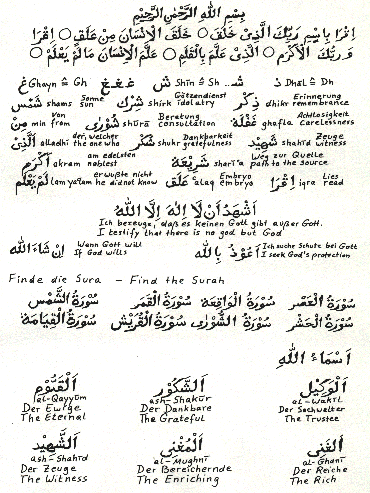 بِسْمِ اللهِ الرَّحْمٰنِ الرَّحِيْمِ
اِقْرَأْ بِاسْمِ رَبِّكَ الَّذِىْ خَلَقَ ○ خَلَقَ الْاِنْسَانَ مِنْ عَلَقٍ ○ اِقْرَأْ
وَرَبُّكَ الْاَكْرَمُ ○ الَّذِىْ عَلَّمَ بِالْقَلَمِ ○ عَلَّمَ الْاِنْسَانَ مَا لَمْ يَعْلَمْ ○
غ Ghayn = Gh غـغـغ ش Shīn = Sh شـ ذ Dhāl = Dh
شَمْس shams Sonne sun شِرْك shirk Götzendienst idolatry ذِكْر dhikr Erinnerung remembrance
مِنْ min Von from شُوْرٰى shūrā Beratung consultation غَفْلَة ghafla Achtlosigkeit carelessness
الَّذِىْ alladhi der, welcher the one who شُكْر shukr Dankbarkeit gratefulness شَهِيْد shahīd Zeuge witness
اَكْرَم akram am edelsten noblest شَرِيْعَة sharī'a Weg zur Quelle path to the source
لَمْ يَعْلَمْ lam ya'lam er wußte nicht he did not know عَلَق 'alaq Embryo embryo اِقْرَأْ iqra Lies read
اَشْهَدُ اَنْ لَا اِلٰهَ اِلَّا اللهُ
Ich bezeuge, daß es keinen Gott gibt außer Gott.
I testify that there is no god but God
اِنْ شَاءَ اللهُ Wenn Gott will If God wills اَعُوْذُ بِاللهِ Ich suche Schutz bei Gott I seek God's protection
Finde die Sura – Find the Surah
سُوْرَةُ الْعَصْر سُوْرَةُ الْوَاقِعَة سُوْرَةُ الْقَمَر سُوْرَةُ الشَّمْس
سُوْرَةُ الْحَشْر سُوْرَةُ الشُّوْرٰى سُوْرَةُ الْقُرَيْش سُوْرَةُ الْقِيَامَة
اَسْمَاءُ اللهِ
اَلْقَيُّوْمُ اَلشَّكُوْرُ اَلْوَكِيْلُ
al-Qayyūm ash-Shakūr al-Wakīl
Der Ewige Der Dankbare Der Sachwalter
The Eternal The Grateful The Trustee
اَلشَّهِيْدُ اَلْمُغْنِى اَلْغَنِى
ash-Shahīd al-Mughnī al-Ghanī
Der Zeuge Der Bereichernde Der Reiche
The Witness The Enriching The Rich